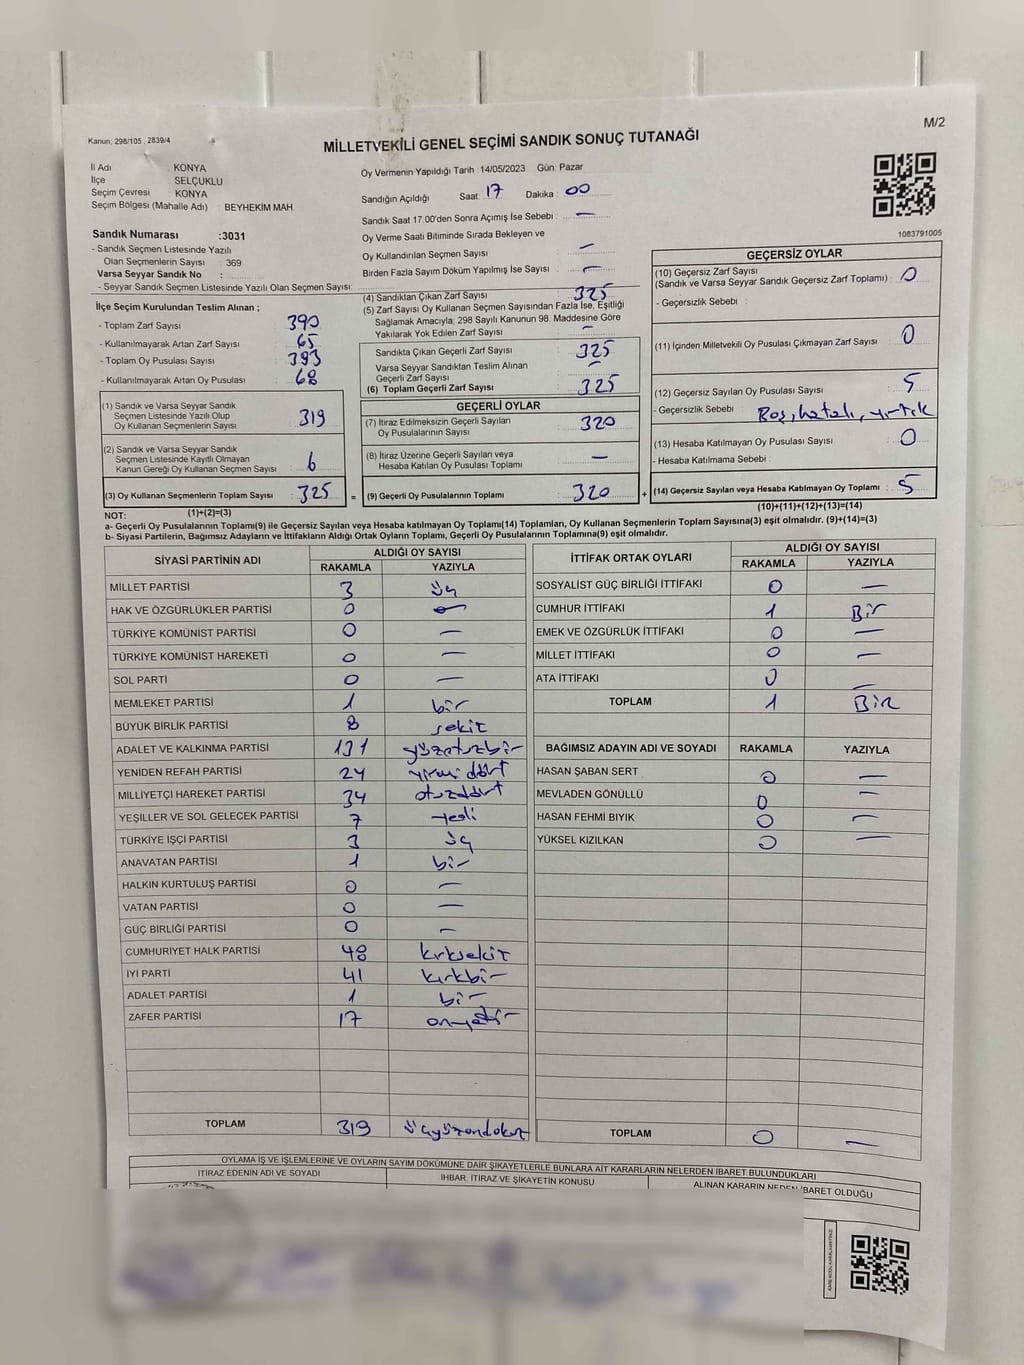 M/2
Kanun: 298/105 , 2839/4
MİLLETVEKİLİ GENEL SEÇİMİ SANDIK SONUÇ TUTANAĞI
İl Adı : KONYA
İlçe : SELÇUKLU
Seçim Çevresi : KONYA
Seçim Bölgesi (Mahalle Adı) : BEYHEKİM MAH.
Sandık Numarası :3031
- Sandık Seçmen Listesinde Yazılı
Olan Seçmenlerin Sayısı : 369
Varsa Seyyar Sandık No :
- Seyyar Sandık Seçmen Listesinde Yazılı Olan Seçmen Sayısı:
İlçe Seçim Kurulundan Teslim Alınan ;
- Toplam Zarf Sayısı : 390
- Kullanılmayarak Artan Zarf Sayısı : 65
- Toplam Oy Pusulası Sayısı : 393
- Kullanılmayarak Artan Oy Pusulası : 68
(1) Sandık ve Varsa Seyyar Sandık
Seçmen Listesinde Yazılı Olup
Oy Kullanan Seçmenlerin Sayısı : 319
(2) Sandık ve Varsa Seyyar Sandık
Seçmen Listesinde Kayıtlı Olmayan
Kanun Gereği Oy Kullanan Seçmen Sayısı : 6
(3) Oy Kullanan Seçmenlerin Toplam Sayısı : 325
(1)+(2)=(3)
Oy Vermenin Yapıldığı Tarih :14/05/2023 Gün: Pazar
Sandığın Açıldığı Saat: 17 Dakika : 00
Sandık Saat 17:00'den Sonra Açımış İse Sebebi : —
Oy Verme Saati Bitiminde Sırada Bekleyen ve
Oy Kullandırılan Seçmen Sayısı : —
Birden Fazla Sayım Döküm Yapılmış İse Sayısı : —
(4) Sandıktan Çıkan Zarf Sayısı : 325
(5) Zarf Sayısı Oy Kullanan Seçmen Sayısından Fazla İse, Eşitliği
Sağlamak Amacıyla, 298 Sayılı Kanunun 98. Maddesine Göre
Yakılarak Yok Edilen Zarf Sayısı : —
Sandıkta Çıkan Geçerli Zarf Sayısı : 325
Varsa Seyyar Sandıktan Teslim Alınan
Geçerli Zarf Sayısı : —
(6) Toplam Geçerli Zarf Sayısı : 325
GEÇERLİ OYLAR
(7) İtiraz Edilmeksizin Geçerli Sayılan
Oy Pusulalarının Sayısı : 320
(8) İtiraz Üzerine Geçerli Sayılan veya
Hesaba Katılan Oy Pusulası Toplamı : —
= (9) Geçerli Oy Pusulalarının Toplamı : 320 +
1083791005
GEÇERSİZ OYLAR
(10) Geçersiz Zarf Sayısı
(Sandık ve Varsa Seyyar Sandık Geçersiz Zarf Toplamı) : 0
- Geçersizlik Sebebi :
(11) İçinden Milletvekili Oy Pusulası Çıkmayan Zarf Sayısı : 0
(12) Geçersiz Sayılan Oy Pusulası Sayısı : 5
- Geçersizlik Sebebi : Boş, hatalı, yırtık
(13) Hesaba Katılmayan Oy Pusulası Sayısı : 0
- Hesaba Katılmama Sebebi :
(14) Geçersiz Sayılan veya Hesaba Katılmayan Oy Toplamı : 5
(10)+(11)+(12)+(13)=(14)
NOT:
a- Geçerli Oy Pusulalarının Toplamı(9) ile Geçersiz Sayılan veya Hesaba katılmayan Oy Toplamı(14) Toplamları, Oy Kullanan Seçmenlerin Toplam Sayısına(3) eşit olmalıdır. (9)+(14)=(3)
b- Siyasi Partilerin, Bağımsız Adayların ve İttifakların Aldığı Ortak Oyların Toplamı, Geçerli Oy Pusulalarının Toplamına(9) eşit olmalıdır.
SİYASİ PARTİNİN ADI ALDIĞI OY SAYISI
RAKAMLA YAZIYLA
MİLLET PARTİSİ 3 üç
HAK VE ÖZGÜRLÜKLER PARTİSİ 0 —
TÜRKİYE KOMÜNİST PARTİSİ 0 —
TÜRKİYE KOMÜNİST HAREKETİ 0 —
SOL PARTİ 0 —
MEMLEKET PARTİSİ 1 bir
BÜYÜK BİRLİK PARTİSİ 8 sekiz
ADALET VE KALKINMA PARTİSİ 131 yüzotuzbir
YENİDEN REFAH PARTİSİ 24 yirmi dört
MİLLİYETÇİ HAREKET PARTİSİ 34 otuzdört
YEŞİLLER VE SOL GELECEK PARTİSİ 7 yedi
TÜRKİYE İŞÇİ PARTİSİ 3 üç
ANAVATAN PARTİSİ 1 bir
HALKIN KURTULUŞ PARTİSİ 0 —
VATAN PARTİSİ 0 —
GÜÇ BİRLİĞİ PARTİSİ 0 —
CUMHURİYET HALK PARTİSİ 48 kırksekiz
İYİ PARTİ 41 kırkbir
ADALET PARTİSİ 1 bir
ZAFER PARTİSİ 17 onyedi
TOPLAM 319 üçyüzondokuz
İTTİFAK ORTAK OYLARI ALDIĞI OY SAYISI
RAKAMLA YAZIYLA
SOSYALİST GÜÇ BİRLİĞİ İTTİFAKI 0 —
CUMHUR İTTİFAKI 1 Bir
EMEK VE ÖZGÜRLÜK İTTİFAKI 0 —
MİLLET İTTİFAKI 0 —
ATA İTTİFAKI 0 —
TOPLAM 1 BİR
BAĞIMSIZ ADAYIN ADI VE SOYADI RAKAMLA YAZIYLA
HASAN ŞABAN SERT 0 —
MEVLADEN GÖNÜLLÜ 0 —
HASAN FEHMİ BIYIK 0 —
YÜKSEL KIZILKAN 0 —
TOPLAM 0 —
OYLAMA İŞ VE İŞLEMLERİNE VE OYLARIN SAYIM DÖKÜMÜNE DAİR ŞİKAYETLERLE BUNLARA AİT KARARLARIN NELERDEN İBARET BULUNDUKLARI
İTİRAZ EDENİN ADI VE SOYADI İHBAR, İTİRAZ VE ŞİKAYETİN KONUSU ALINAN KARARIN NEDEN İBARET OLDUĞU